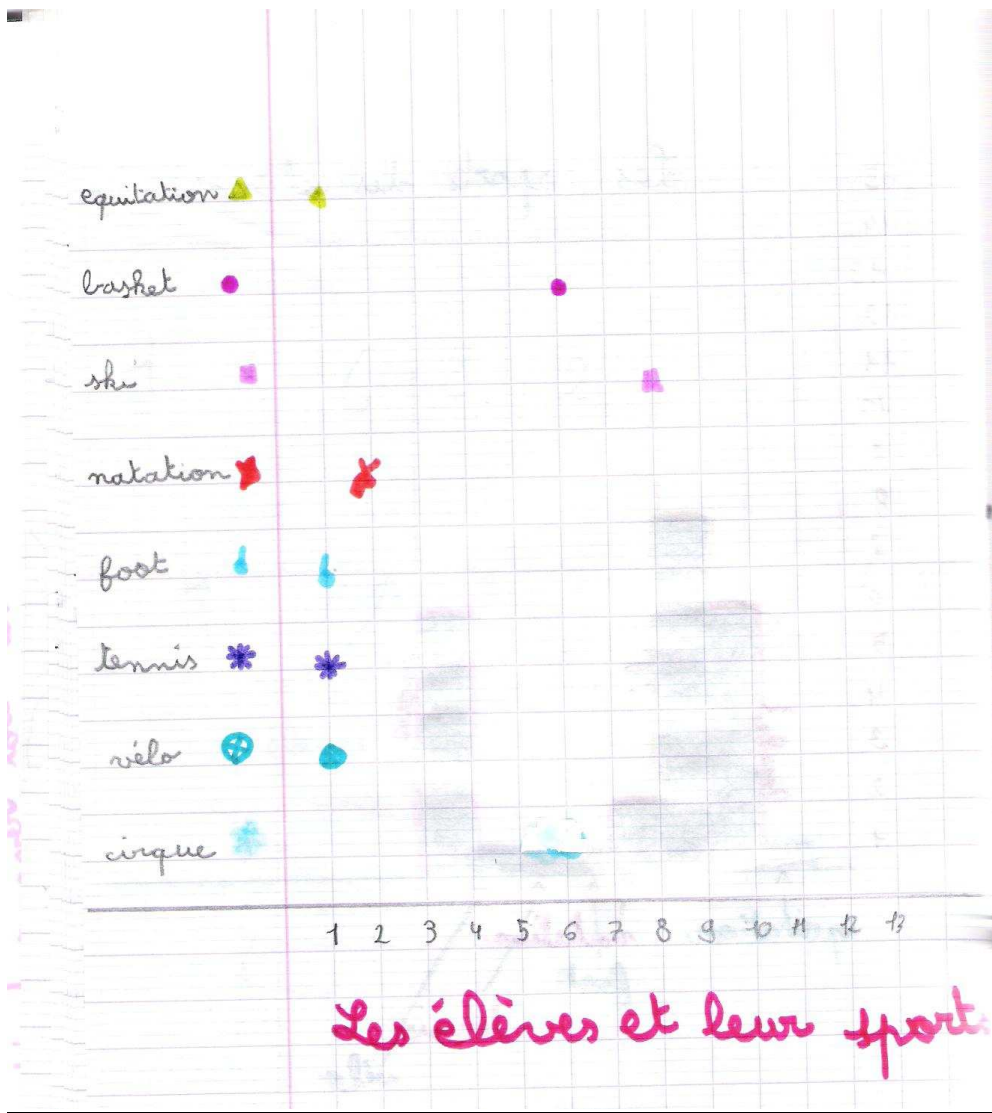 equitation
basket
ski
natation
foot
tennis
vélo
cirque
1 2 3 4 5 6 7 8 9 10 11 12 13
Les élèves et leur sport